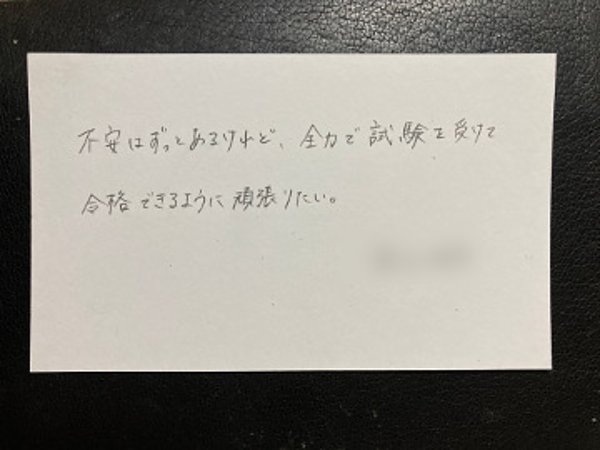 不安はずっとあるけれど、全力で試験を受けて
合格できるように頑張りたい。